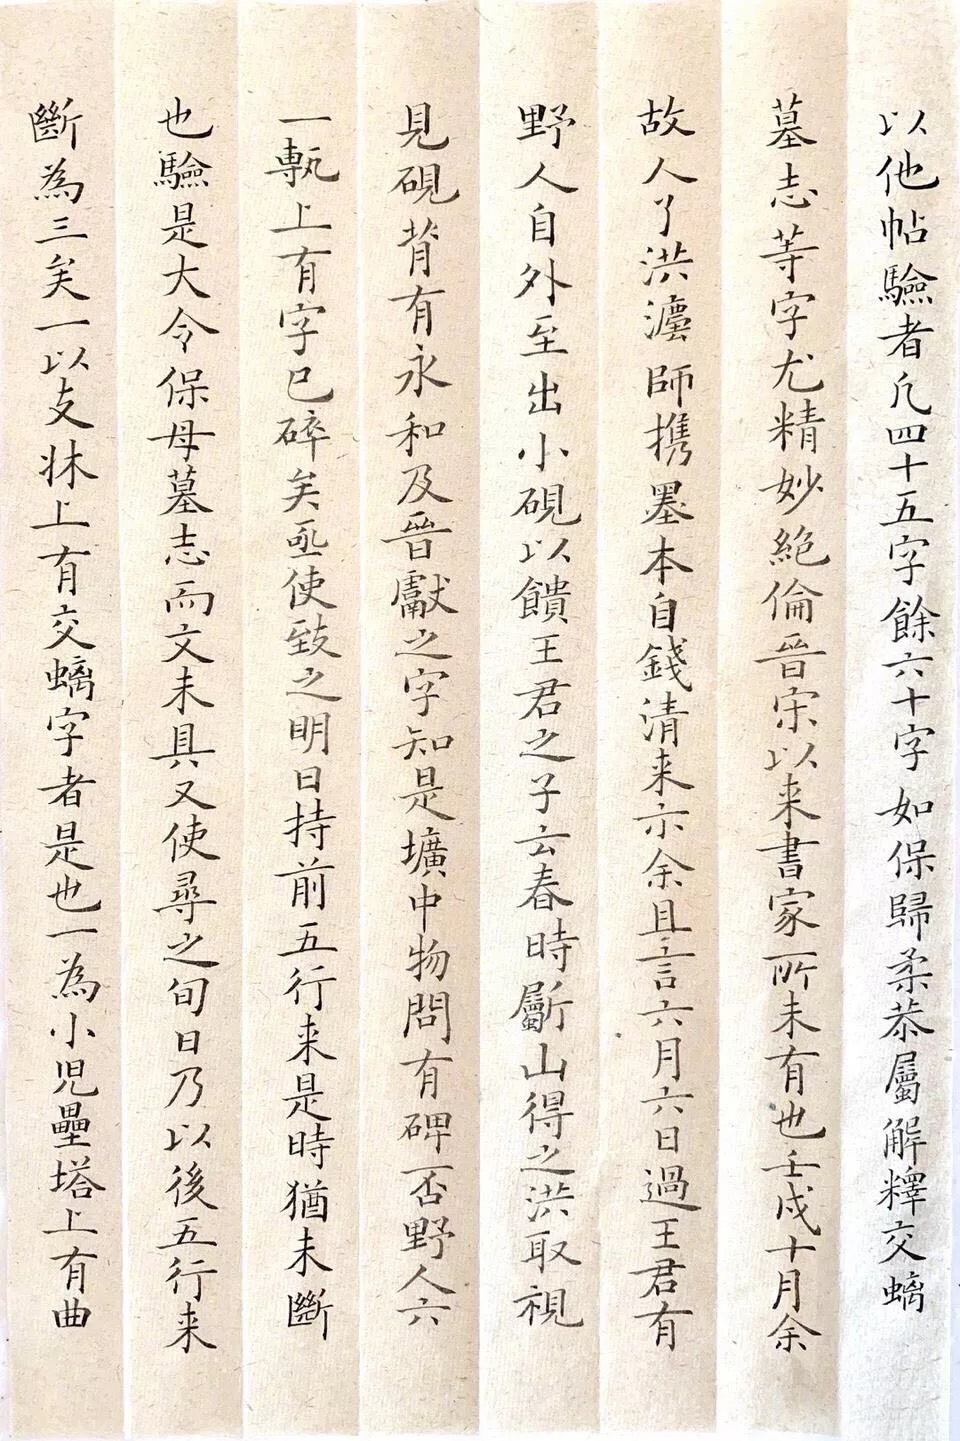 以他帖驗者凡四十五字餘六十字如保歸柔恭屬解釋交螭
墓志等字尤精妙絕倫晉宋以来書家所未有也壬戌十月余
故人了洪灋師携墨本自錢清来示余且言六月六日過王君有
野人自外至出小硯以饋王君之子云春時斸山得之洪取視
見硯背有永和及晉獻之字知是壙中物問有碑否野人云
一甎上有字已碎矣亟使致之明日持前五行来是時猶未斷
也驗是大令保母墓志而文未具又使尋之旬日乃以後五行来
斷為三矣一以支牀上有交螭字者是也一為小児壘塔上有曲